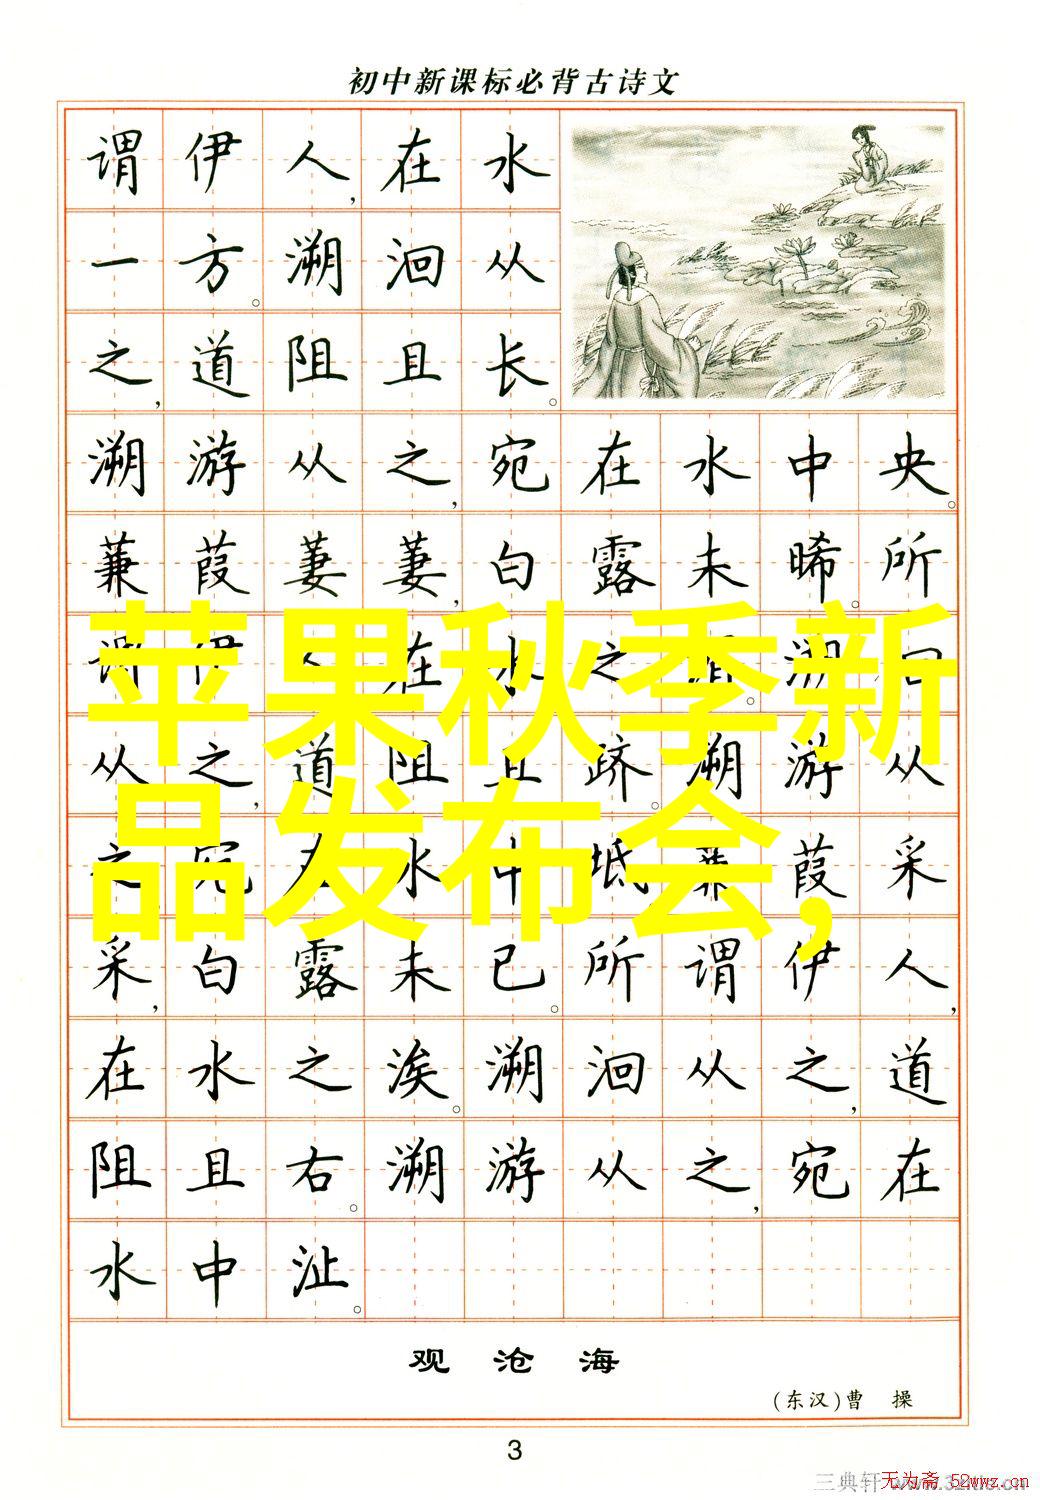 初中新课标必背古诗文
谓伊人，在水
一方。溯洄从
之，道阻且长。
溯游从之，宛在水中央。
蒹葭萋萋，白露未晞。所
谓伊人，在水之湄。溯洄
从之，道阻且跻。溯游从
之，宛在水中坻。蒹葭采
采，白露未已。所谓伊人，
在水之涘。溯洄从之，道
阻且右。溯游从之，宛在
水中沚。
苹果秋季新
品发布会，
观沧海
(东汉)曹 操
3
三典轩
无为斋 52wwz.cn